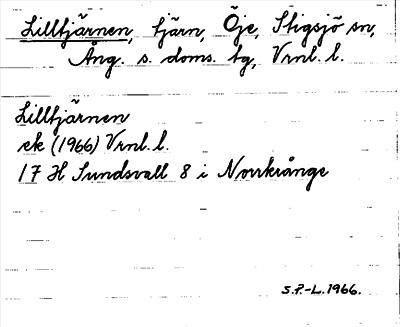 Lilltjärnen, tjärn, Öje, Stigsjö sn,
Ång. s. doms. tg, Vrnl. l.
Lilltjärnen
ek (1966) Vrnl. l.
17 H Sundsvall 8 i Norrkrånge
S.P.-L. 1966.